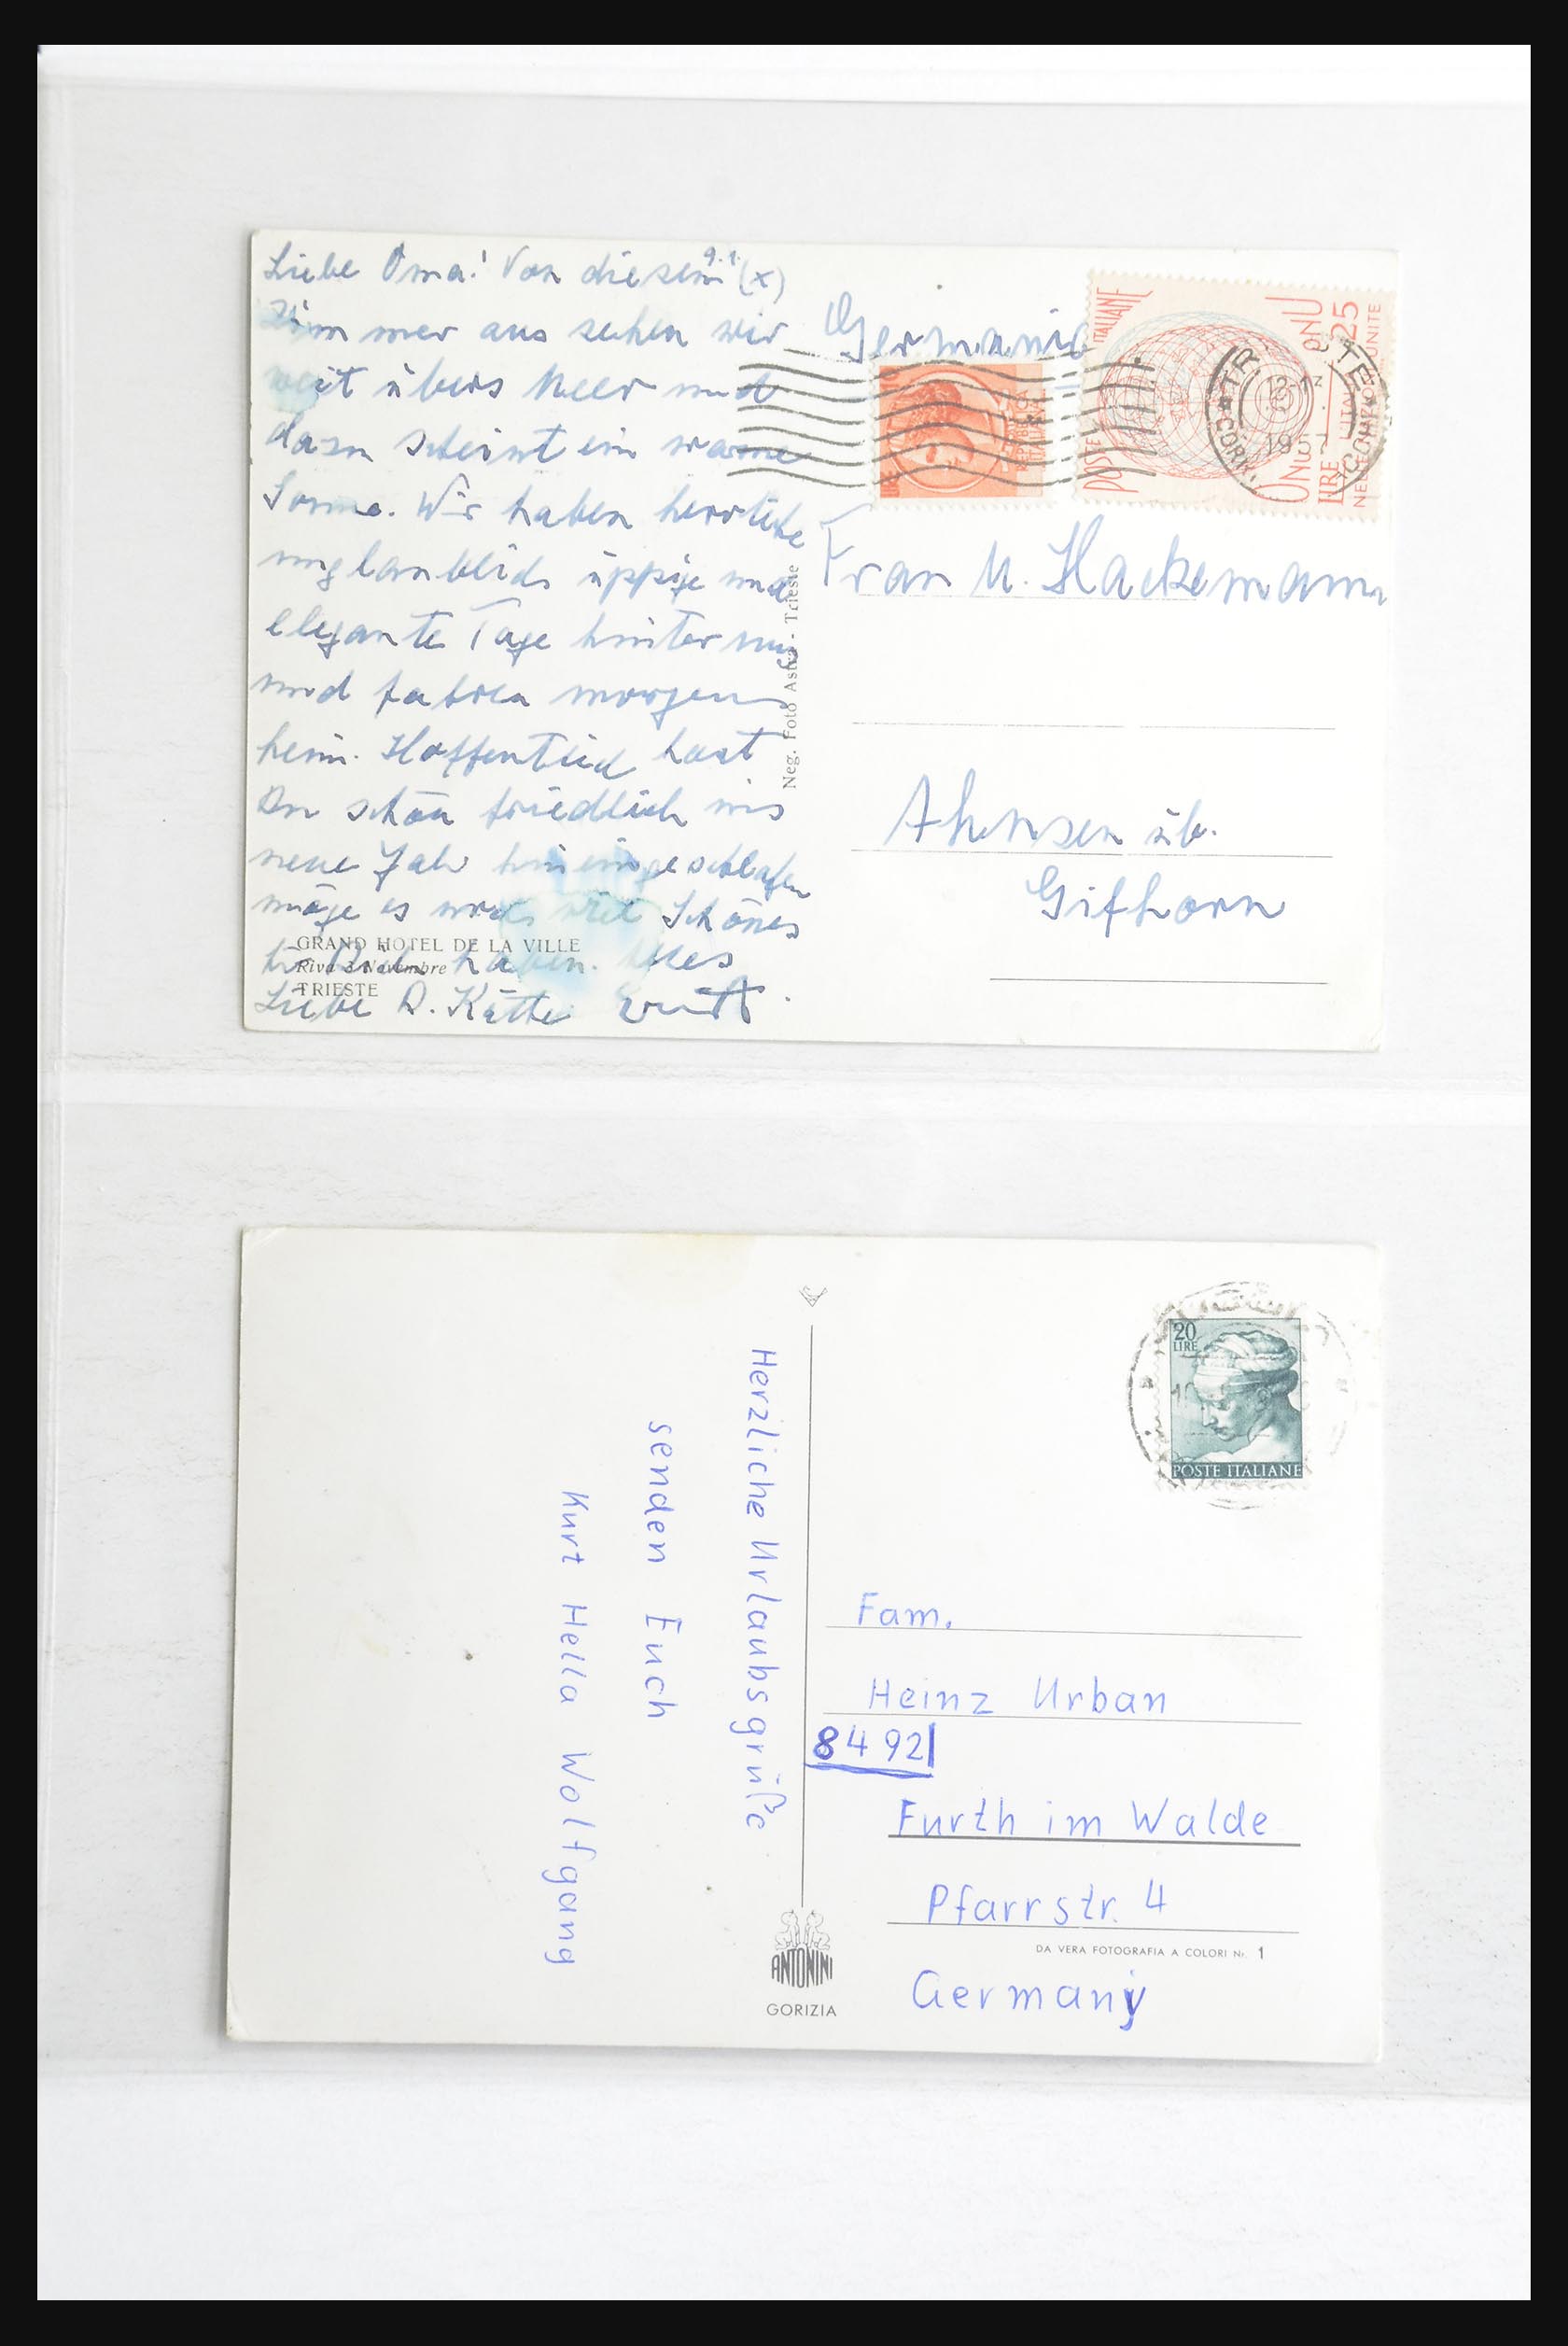 Liebe Oma! Von diesem (x)
9.1.
Zimmer aus sehen wir
weit übers Meer und
dazu scheint ein warme
Sonne. Wir haben herrliche
unglaublich üppige und
elegante Tage hinter uns
und fahren morgen
heim. Hoffentlich hast
Du schön friedlich ins
neue Jahr hineingeschlafen
möge es noch viel Schönes
für Dich haben. Alles
Liebe D. Käthe
GRAND HOTEL DE LA VILLE
Riva 3 Novembre
TRIESTE
Neg. Foto - Trieste
Germania
POSTE ITALIANE
ONU ONU
LIRE 25
REPUBBLICA ITALIANA
12-13
195
CORR.
Frau M. Hackemann
Ahnsen üb.
Gifhorn
Herzliche Urlaubsgrüße
senden Euch
Kurt Hella Wolfgang
20
LIRE
POSTE ITALIANE
Fam.
Heinz Urban
8492
Furth im Walde
Pfarrstr. 4
DA VERA FOTOGRAFIA A COLORI Nr. 1
Germany
ANTONINI
GORIZIA